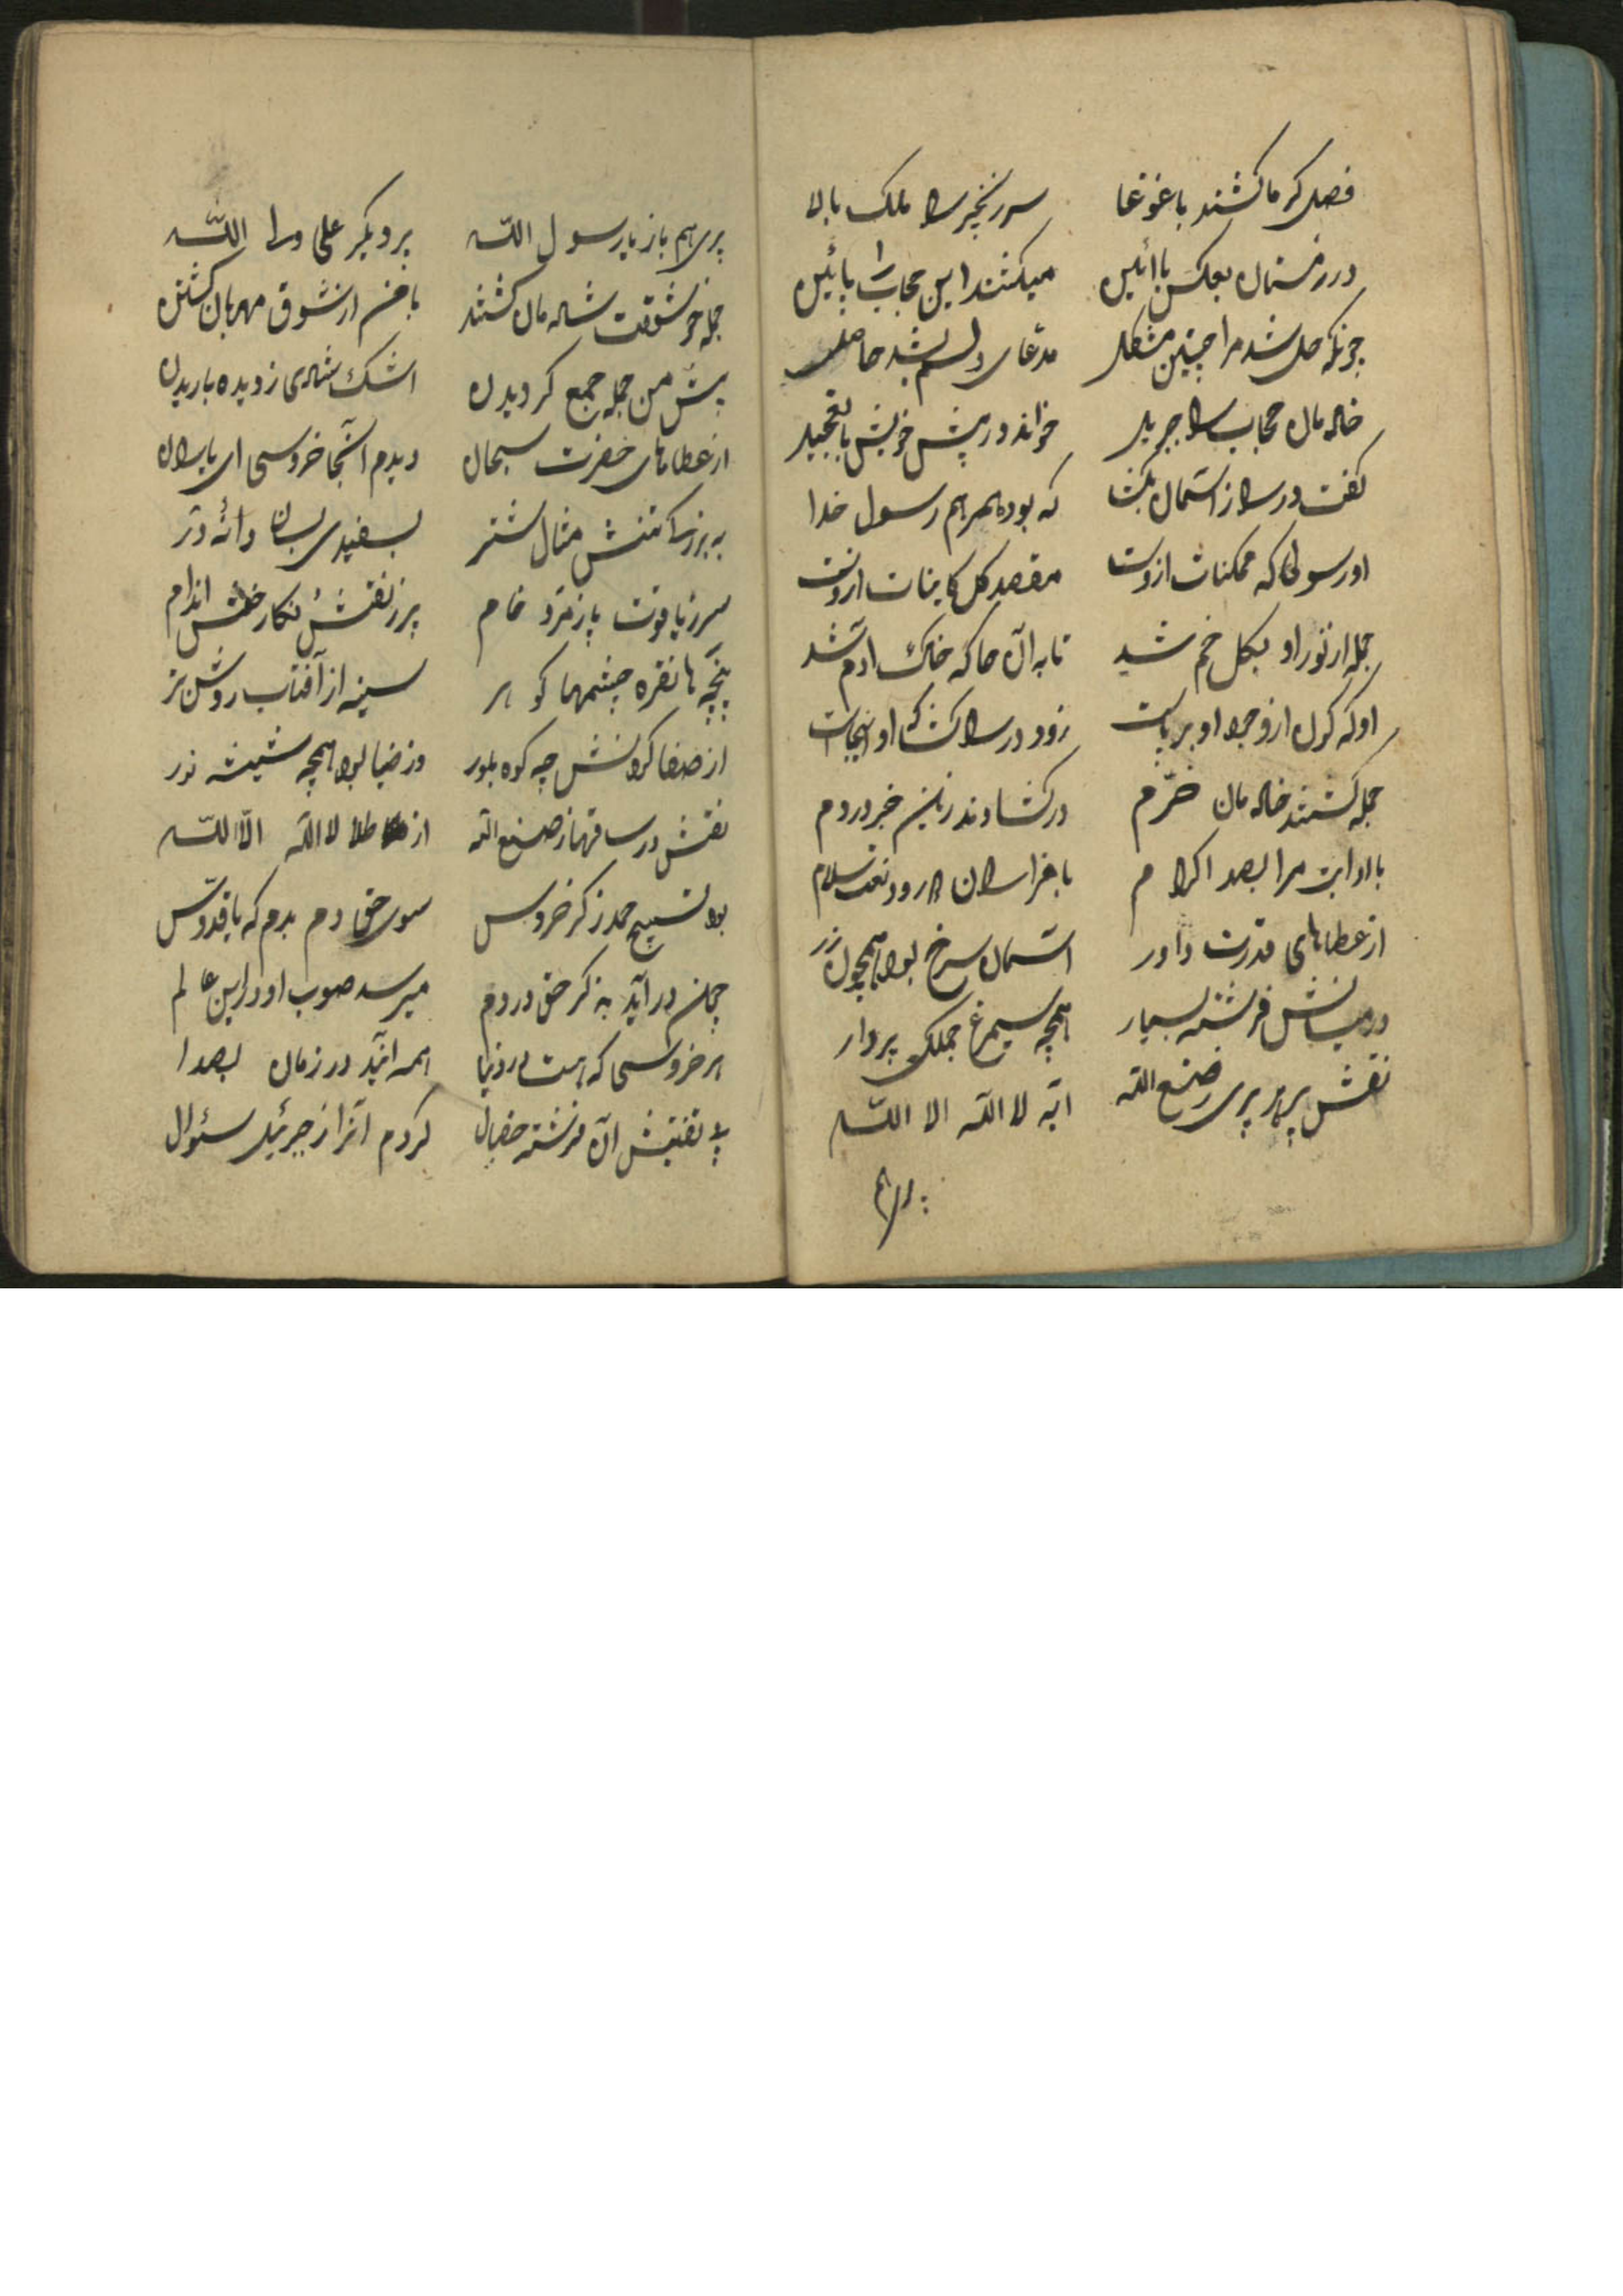 فصل گرما کشند با غوغا سر زنجیر را ملک بالا
در زمستان بعکس با ائین میکشند این حجاب را پائین
چونکه حل شد مرا چنین مشکل مدعای دلم بشد حاصل
خازمان حجاب را جبریل خواند در پیش خویش با تعجیل
گفت در را ز اسمان بگشا که بود همرهم رسول خدا
او رسولی که ممکنات ازوست مقصد کل کاینات ازوست
جمله از نور او بکل خم شد تا به آن جا که خاک ادم شد
او که گردن از وجود او برپاست زود در را گشا که او اینجاست
جمله گشتند خازمان خرم در گشادند زین خبر در دم
با ادابت مرا بصد اکرام با هزاران درود نعت سلام
از عطاهای قدرت داور اسمان سرخ بود همچون زر
در میانش فرشته بسیار همچه سیمرغ جملکی پردار
نقش پر هر پری ز صنع الله ایه لا اله الا اللّه
پری هم
پری هم باز یا رسول اللّه بر دیگر علی ولی اللّه
جمله خوشوقت شادمان گشتند با من از شوق مهربان گشتند
پیش من جمله جمع گردیدن اشک شادی ز دیده باریدن
از عطاهای حضرت سبحان دیدم انجا خروسی ای یاران
به بزرگی تنش مثال شتر بسفیدی بسان دانه در
سر ز یاقوت پا زمرد فام پر ز نقش نکار خوش اندام
پنجه ها نقره چشمها گوهر سینه از آفتاب روشن تر
از صفا گردنش چه کوه بلور وز ضیا بود همچه شیشه نور
نقش در ساقها ز صنع الله از طلا لا اله الّا اللّه
بود تسبیح حمد ذکر خروس سوی حق دم بدم که یا قدّوس
چان در آید به ذکر حق در دم میرسد صوت او در این عالم
هر خروسی که هست در دنیا همه ایند در زمان بصدا
پی تفتیش آن فرشته خصال کردم انرا ز جبرئیل سئوال